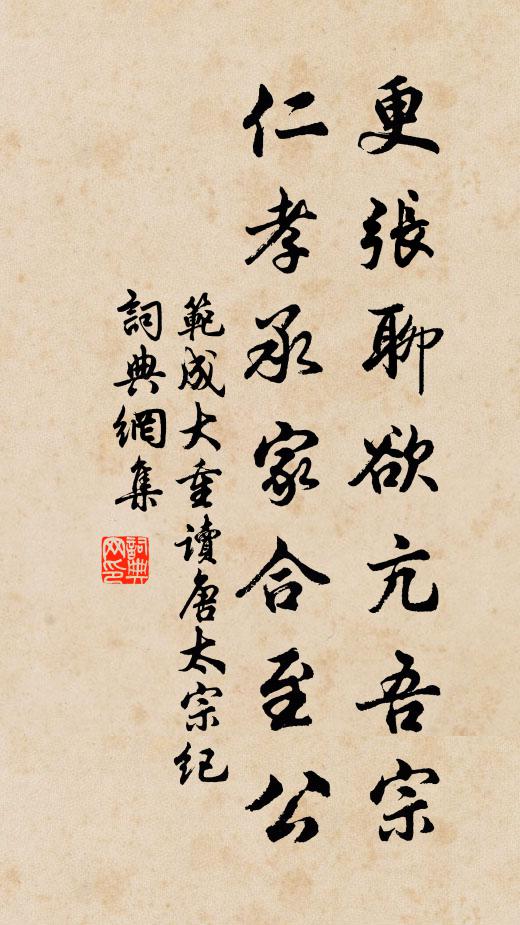 更張聊欲亢吾宗
仁孝承家合至公
範成大重讀唐太宗紀
詞典網集
詞典網印